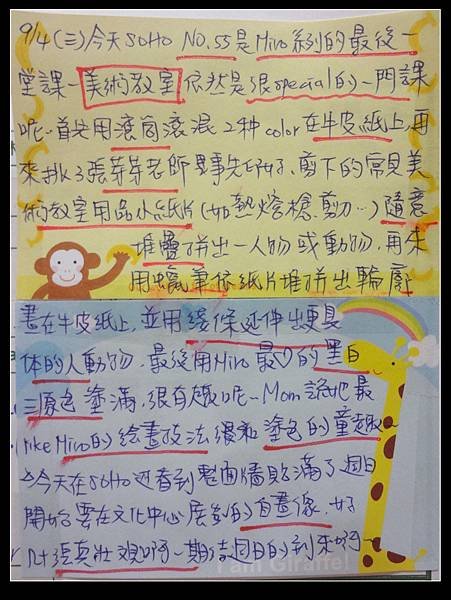 9/4(三)今天SOHO NO.55是Miro系列的最後一
堂課-美術教室依然是很special的一門課
呢~首先用滾筒滾混2种color在牛皮紙上,再
來挑3張芽芽老師事先印好、剪下的常見美
術教室用品小紙片(如熱熔槍、剪刀…)隨意
堆疊拼出一人物或動物,再來
用蠟筆依紙片堆拼出輪廓
畫在牛皮紙上,並用線條延伸出更具
體的人動物,最後用Miro最♡的黑白
三原色塗滿,很有趣呢~Mom說她最
like Miro的繪畫技法線和塗色的童趣~
今天在SOHO還看到整面牆貼滿了週日
開始要在文化中心展出的自畫像,好
幾張真壯觀啊~期待週日的到來啊~
I am Giraffe!